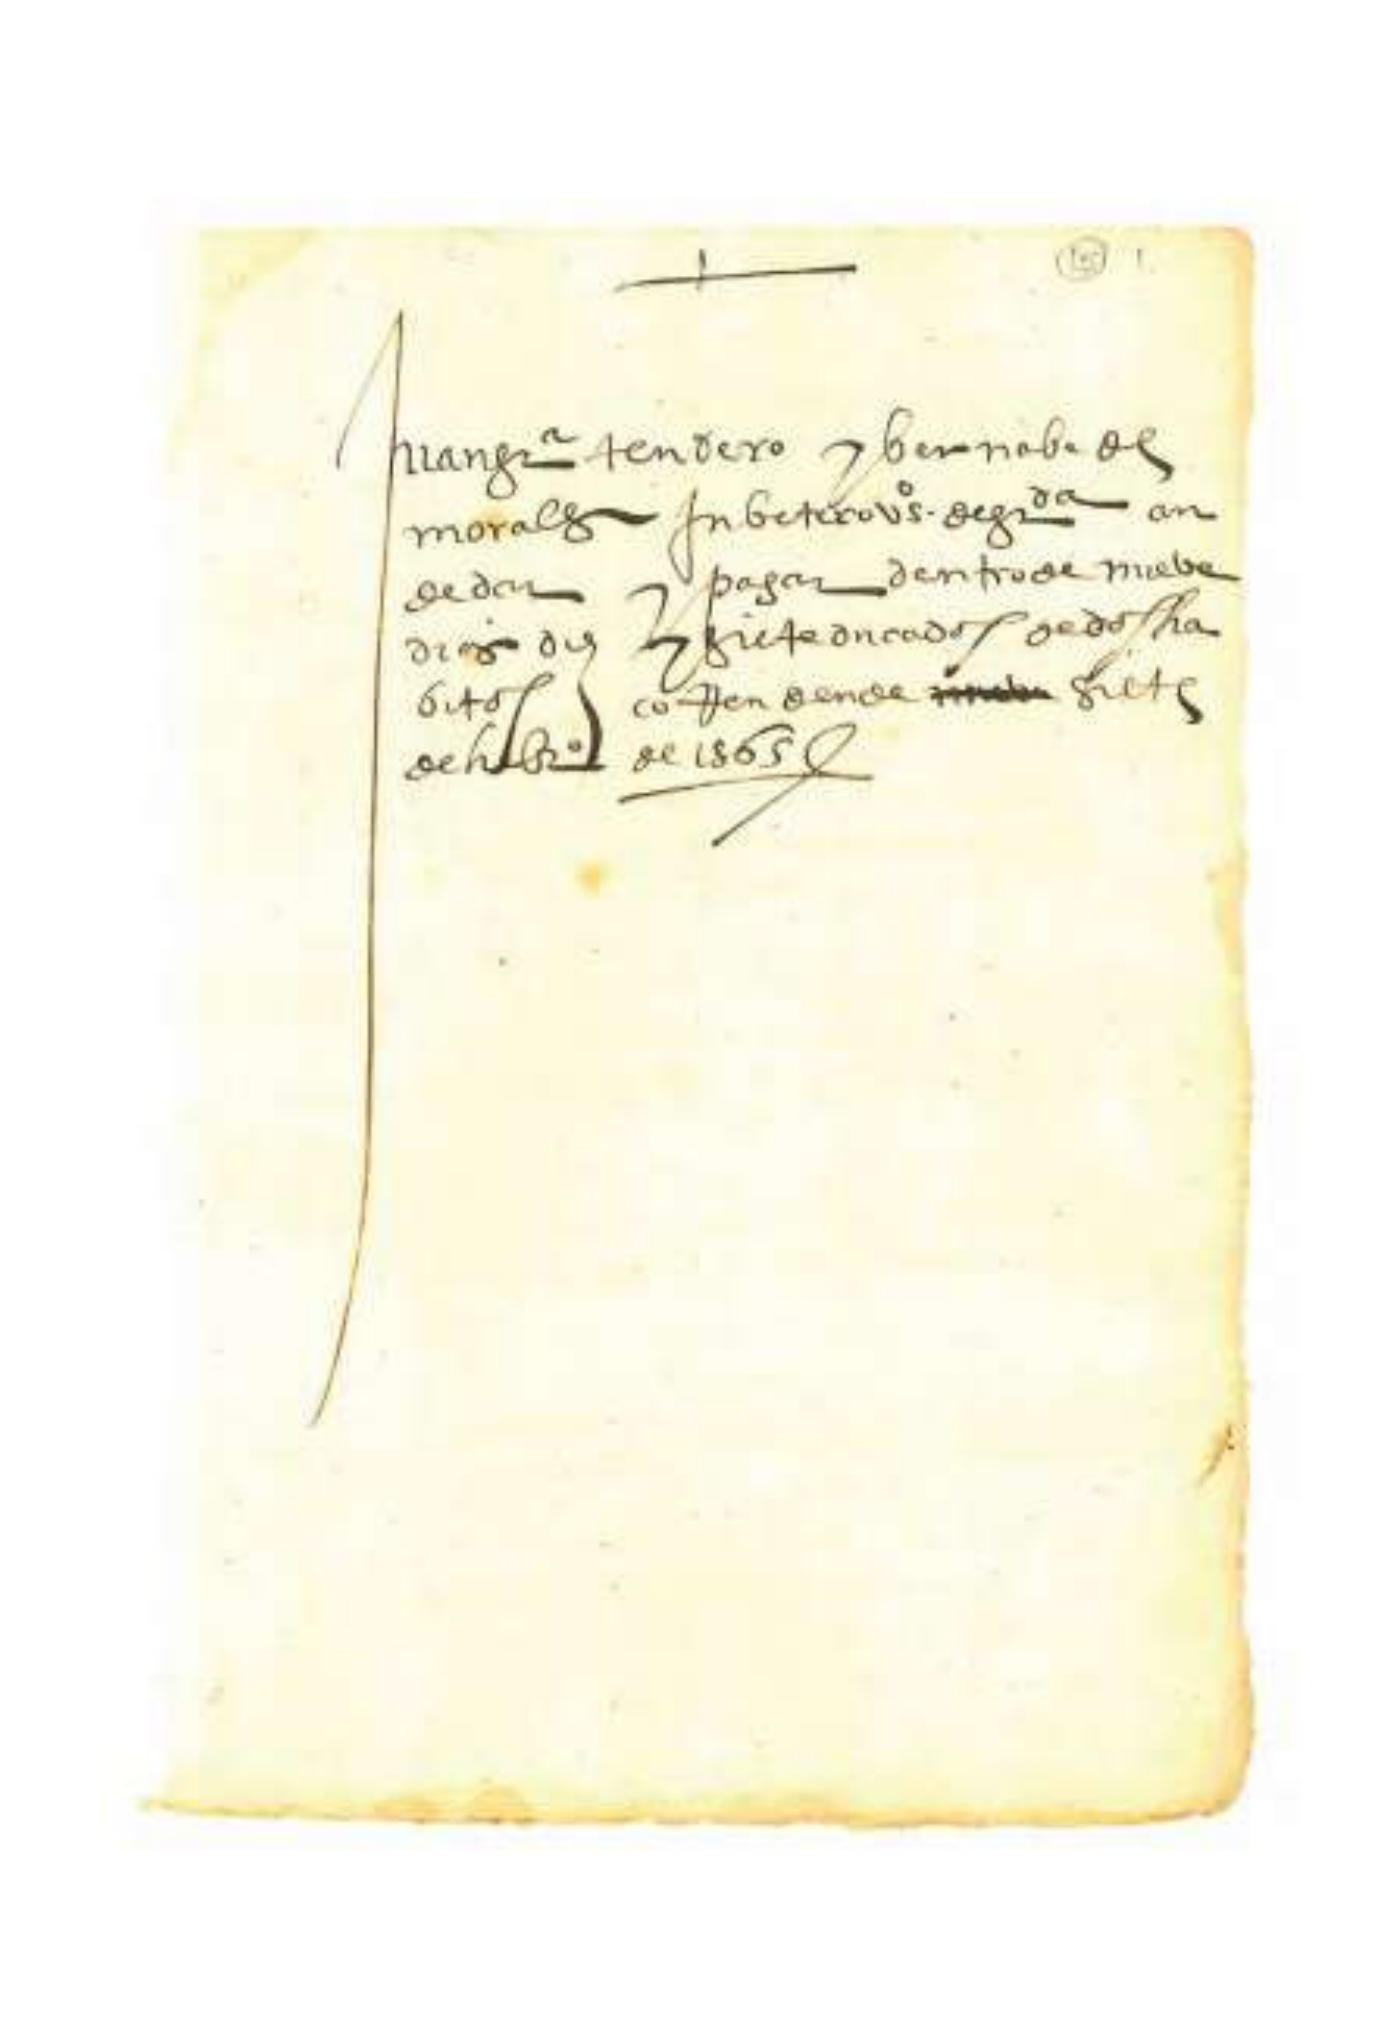 1
Juan gra tendero y bernabe de
morales Inbetero vos. de grda an
de dar y pagar dentro de nuebe
dias diez y siete ducados de dos ha
bitos corren dende nuebe siete
de hebro de 1565